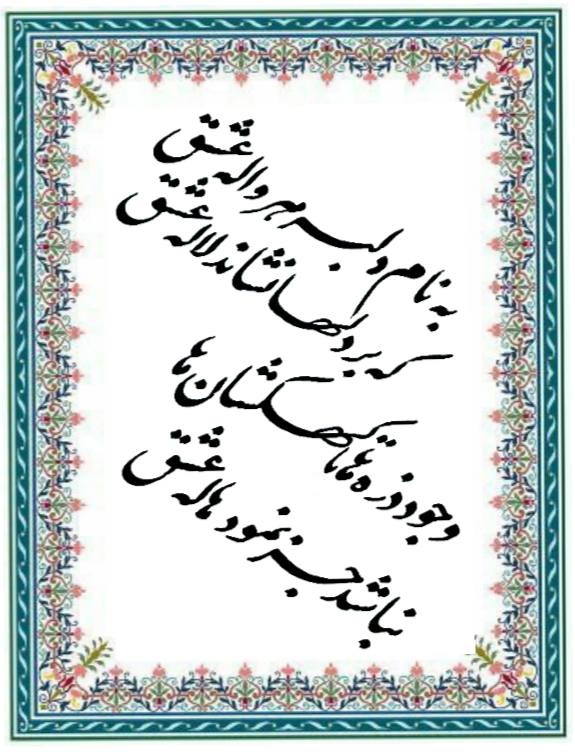 به نام دلبر هر واله عشق
که بر دلها نشاند لاله عشق
وجود ذره ها تا کهکشان ها
نباشد جز نمود هاله عشق